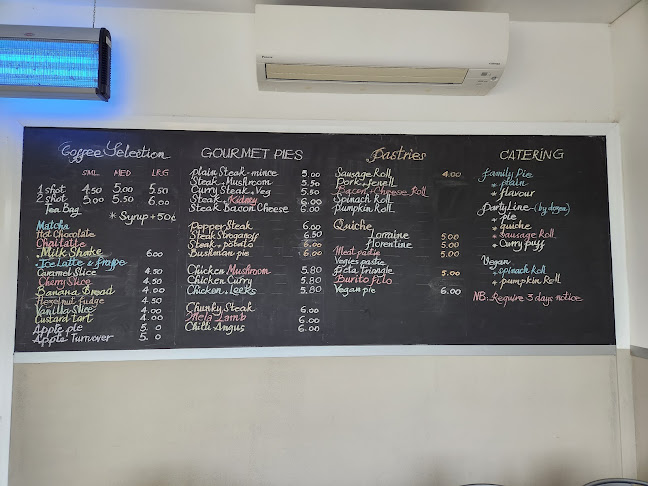 Coffee Selection
SML MED LRG
1 shot 4.50 5.00 5.50
2 shot 5.00 5.50 6.00
Tea Bag
* Syrup + 50¢
Matcha
Hot Chocolate
Chai latte
Milk Shake 6.00
Ice Latte & frappe
Caramel Slice 4.50
Cherry Slice 4.50
Banana Bread 4.00
Hazelnut fudge 4.50
Vanilla Slice 4.00
Custard tart 4.00
Apple pie 5.0
Apple Turnover 5.0
GOURMET PIES
plain Steak-mince 5.00
Steak Mushroom 5.50
Curry Steak & Veg 5.50
Steak Kidney 6.00
Steak Bacon Cheese 6.00
Pepper Steak 6.00
Steak Stroganoff 6.50
Steak & potato 6.00
Bushman pie 6.00
Chicken Mushroom 5.80
Chicken Curry 5.80
Chicken Leeks 5.80
Chunky Steak 6.00
Lamb 6.00
Chilli Angus 6.00
Pastries
Sausage Roll 4.00
Pork Fenell
Bacon Cheese Roll
Spinach Roll
Pumpkin Roll
Quiche
Lorraine 5.00
florentine 5.00
Meat pastie 5.00
Vegies pastie
Feta Triangle 5.00
Burito
Vegan pie 6.00
CATERING
Family Pie
* plain
* flavour
Party Line - (by dozen)
* pie
* quiche
* Sausage Roll
* Curry puff
Vegan
* spinach Roll
* pumpkin Roll
NB: Require 3 days notice